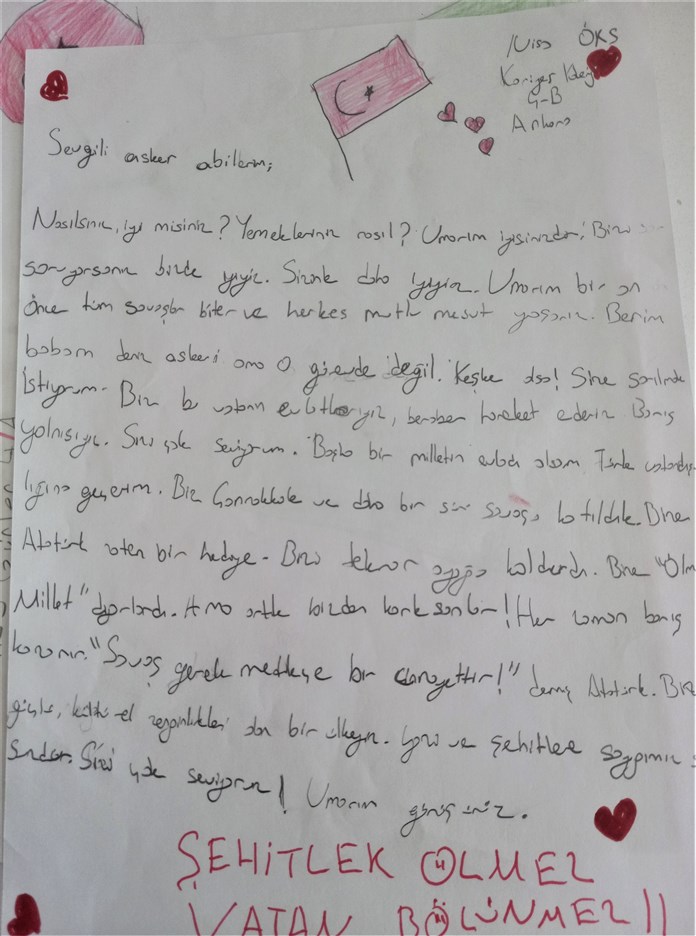 Nisa ÖKS
4-B
Ankara
Sevgili asker abilerim;
Nasılsınız, iyi misiniz? Yemekleriniz nasıl? Umarım iyisinizdir! Bizi
sorarsanız bizde iyiyiz. Sizinle daha iyiyiz. Umarım bir an
önce tüm savaşlar biter ve herkes mutlu mesut yaşarız. Benim
babam deniz askeri ama o görevde değil. Keşke olsa! Size sarılmak
istiyorum. Biz bu vatanın evlatlarıyız, beraber hareket ederiz Barış
Sizi çok seviyorum. Başka bir milletin evladı olsam, Türk vatandaş-
lığına geçerim. Biz Çanakkale ve daha bir sürü savaşa katıldık. Bize
Atatürk zaten bir hediye. Bizi tekrar ayağa kaldırdı. Bize "Ölm
Millet" diyorlardı. Ama artık bizden korksunlar! Her zaman barış
kazanır. "Savaş gerek medikçe bir cinayettir!" demiş Atatürk. Biz
güçlü, kültürel zenginlikleri olan bir ülkeyiz. Gazi ve şehitlere saygımız
Sizi çok seviyorum! Umarım görüşürüz.
ŞEHİTLEK ÖLMEZ
VATAN BÖLÜNMEZ!!